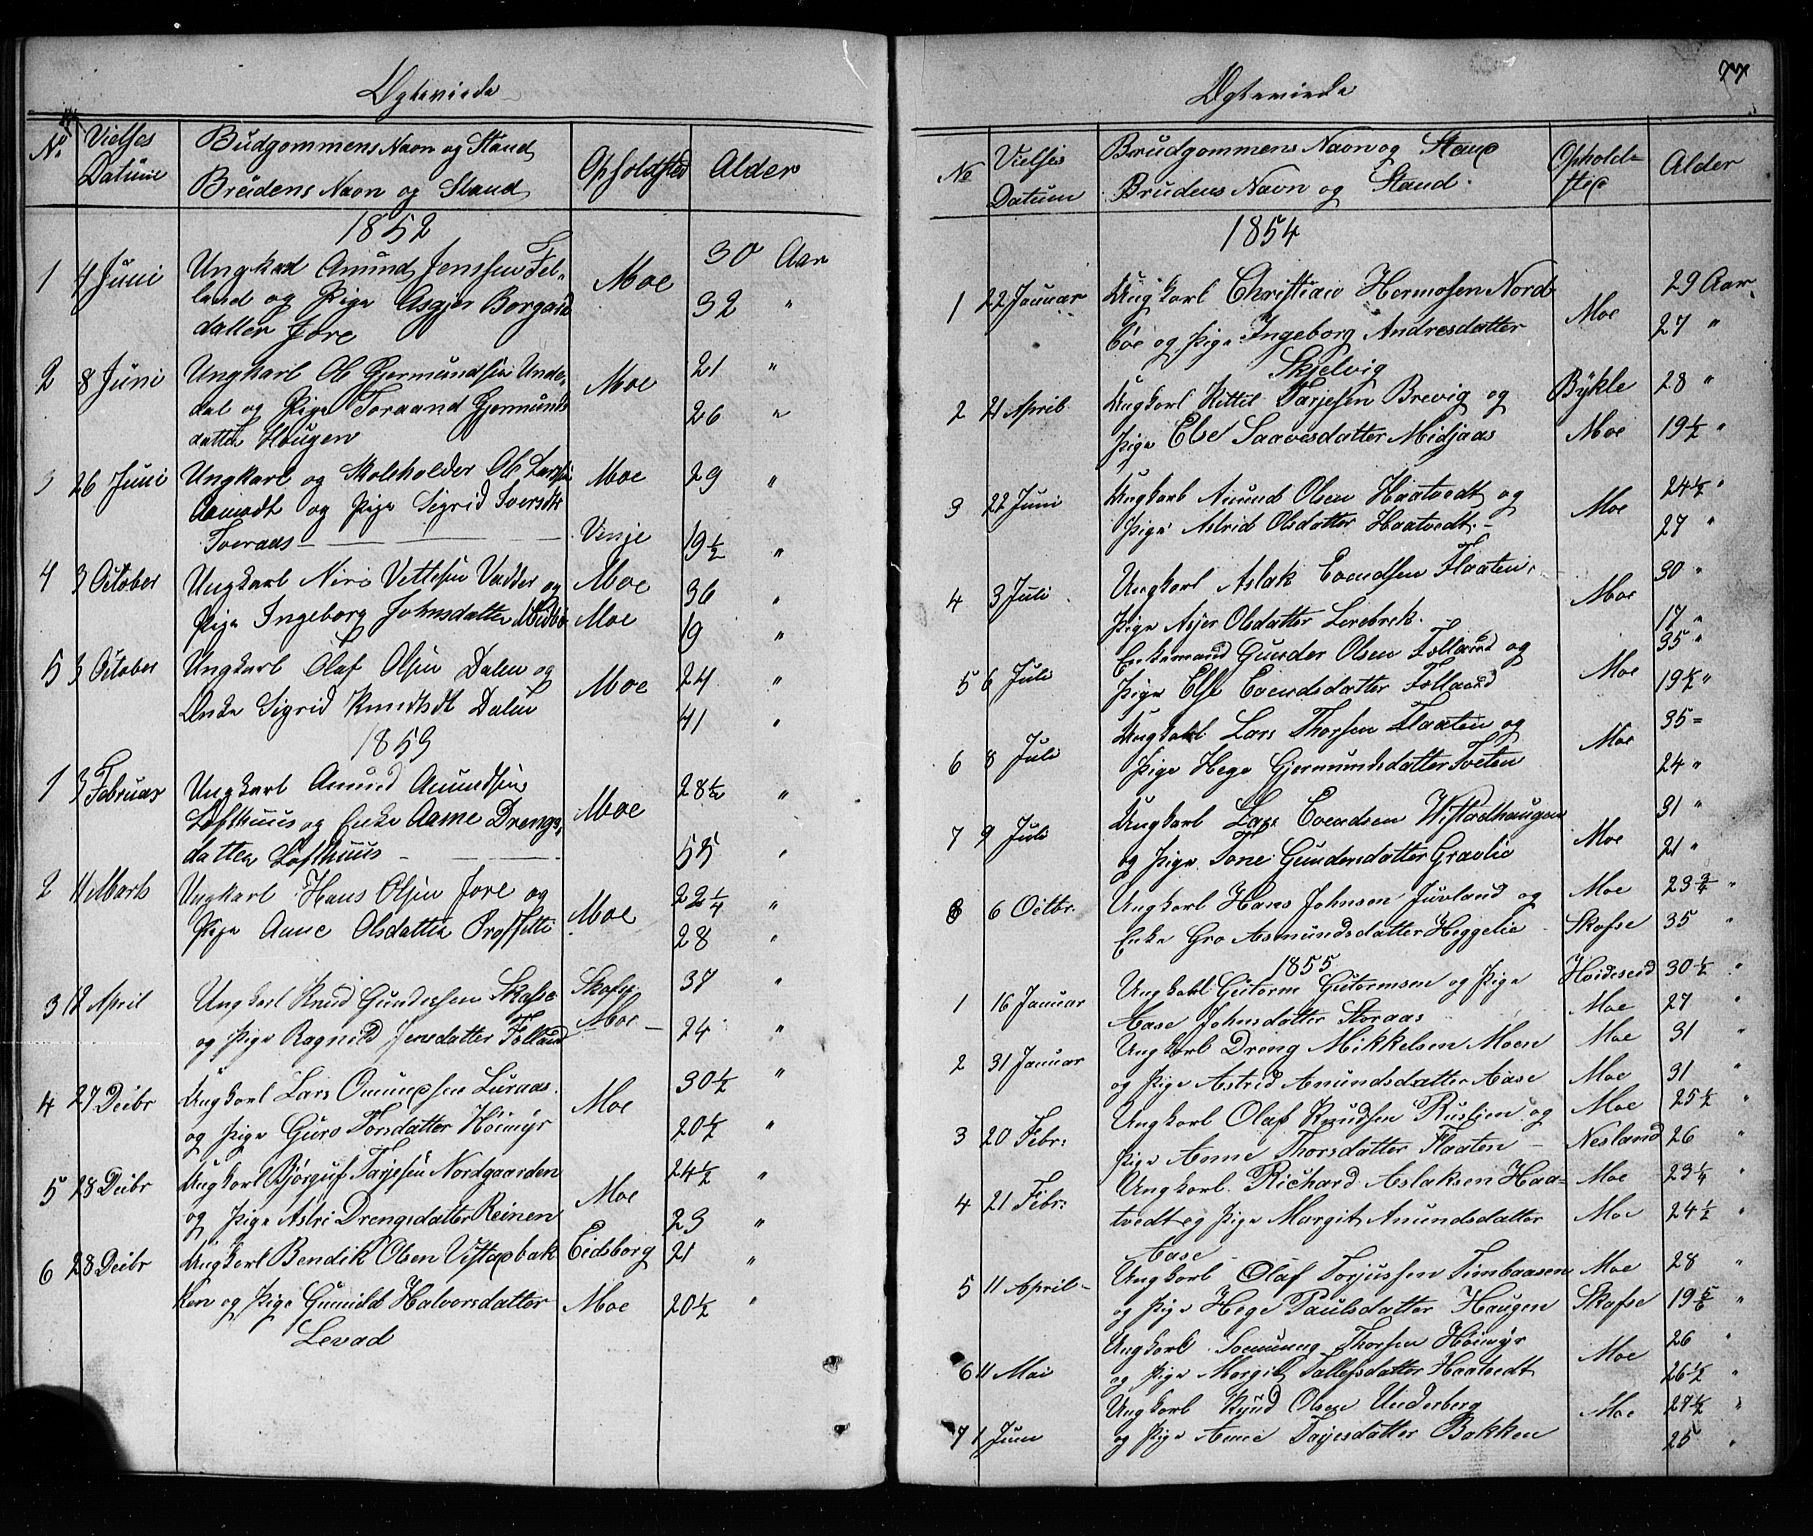 Ægteviede
No Vielses Datum
Brudgommens Navn og Stand
Brudens Navn og Stand
Opholdsted Alder
1852
1 4 Juni Ungkarl Amund Jenssen Fel- Moe 30 Aar
land og Pige Asgjer Borgars 32 "
datter Jore
2 8 Juni Ungkarl Ole Gjermundsen Unde- Moe 21 "
dal og Pige Toraand Gjermunds 26 "
datter Haugen
3 26 Juni Ungkarl og Skoleholder Ole Larssen Moe 29 "
Aamodt og Pige Sigrid Iversdtr
Tveraas Vinje 19½ "
4 3 October Ungkarl Niri Vettesen Vadder og Moe 36 "
Pige Ingeborg Johnsdatter Midbø Moe 19 "
5 3 October Ungkarl Olaf Olsen Dalen og Moe 24 "
Enke Sigrid Knudsdt Dalen 41 "
1853
1 3 Februar Ungkarl Amund Amundsen Moe 28½ "
Lofthuus og Enke Aame Drengs-
datter Lofthuus 55 "
2 11 Marts Ungkarl Hans Olsen Jore og Moe 22¼ "
Pige Anne Olsdatter 28 "
3 18 April Ungkarl Knud Gundersen Skafse Skafse 37 "
og Pige Ragnild Jensdatter Felland Moe 24 "
4 27 Decbr Ungkarl Lars Omundsen Luraas Moe 30½ "
og Pige Guro Torsdatter Höimyr 20½ "
5 28 Decbr Ungkarl Bjørguf Tarjesen Nordgaarden Moe 24½ "
og Pige Astri Drengsdatter Reinen 23 "
6 28 Decbr Ungkarl Bendik Olsen Vistadbak Eidsborg 21 "
ken og Pige Gunnild Halvorsdatter Moe 20½ "
Levad
77
Ægteviede
No Vielses Datum
Brudgommens Navn og Stand
Brudens Navn og Stand.
Opholdsted Alder
1854
1 22 Januar Ungkarl Christian Hermosen Nord- Moe 29 Aar
böe og Pige Ingeborg Andresdatter 27 "
Skjelvig
2 21 April Ungkarl Kittil Tarjesen Breivig og Bykle 28 "
Pige Else Saavesdatter Midjaas Moe 19½ "
3 22 Juni Ungkarl Anund Olsen Haatvedt og Moe 24½ "
Pige Astrid Olsdatter Haatvedt 27 "
4 3 Juli Ungkarl Aslak Evendsen Flaaten Moe 30 "
Pige Asjer Olsdatter Lerebrek 17 "
5 6 Juli Enkemand Gunder Olsen Felland og Moe 35 "
Pige Else Evendsdatter Felland 19½ "
6 8 Juli Ungkarl Lars Thorsen Flaaten og Moe 35 "
Pige Hege Gjermundsdatter Tveten 24 "
7 9 Juli Ungkarl Lars Evendsen Wistadhaugen Moe 31 "
og Pige Tone Gundersdatter Gravlie 21 "
8 6 Octbr. Ungkarl Hans Johnsen Juvland og Moe 23¾ "
Enke Gro Asmundsdatter Heggelie Skafse 35 "
1855
1 16 Januar Ungkarl Gutorm Gutormsen og Pige Hvideseid 30½ "
Aase Johnsdatter Storaas Moe 27 "
2 31 Januar Ungkarl Dreng Mikkelsen Moen Moe 31 "
og Pige Astrid Amundsdatter Aase Moe 31 "
3 20 Febr: Ungkarl Olaf Knudsen Rustjen og Moe 25½ "
Pige Anne Thorsdatter Flaaten Nesland 26 "
4 21 Febr: Ungkarl Richard Aslaksen Haa- Moe 23¼ "
tvedt og Pige Margit Anundsdatter Moe 24½ "
Aase
5 11 April Ungkarl Olaf Torjussen Timbaasen Moe 28 "
og Pige Hege Paulsdatter Haugen Skafse 19⅚ "
6 11 Mai Ungkarl Sommung Thorsen Höimyr Moe 26 "
og Pige Margit Tallefsdatter Haatvedt 26½ "
7 1 Juni Ungkarl Knud Olsen Underberg Moe 27½ "
og Pige Anne Tarjesdatter Bakken 25 "